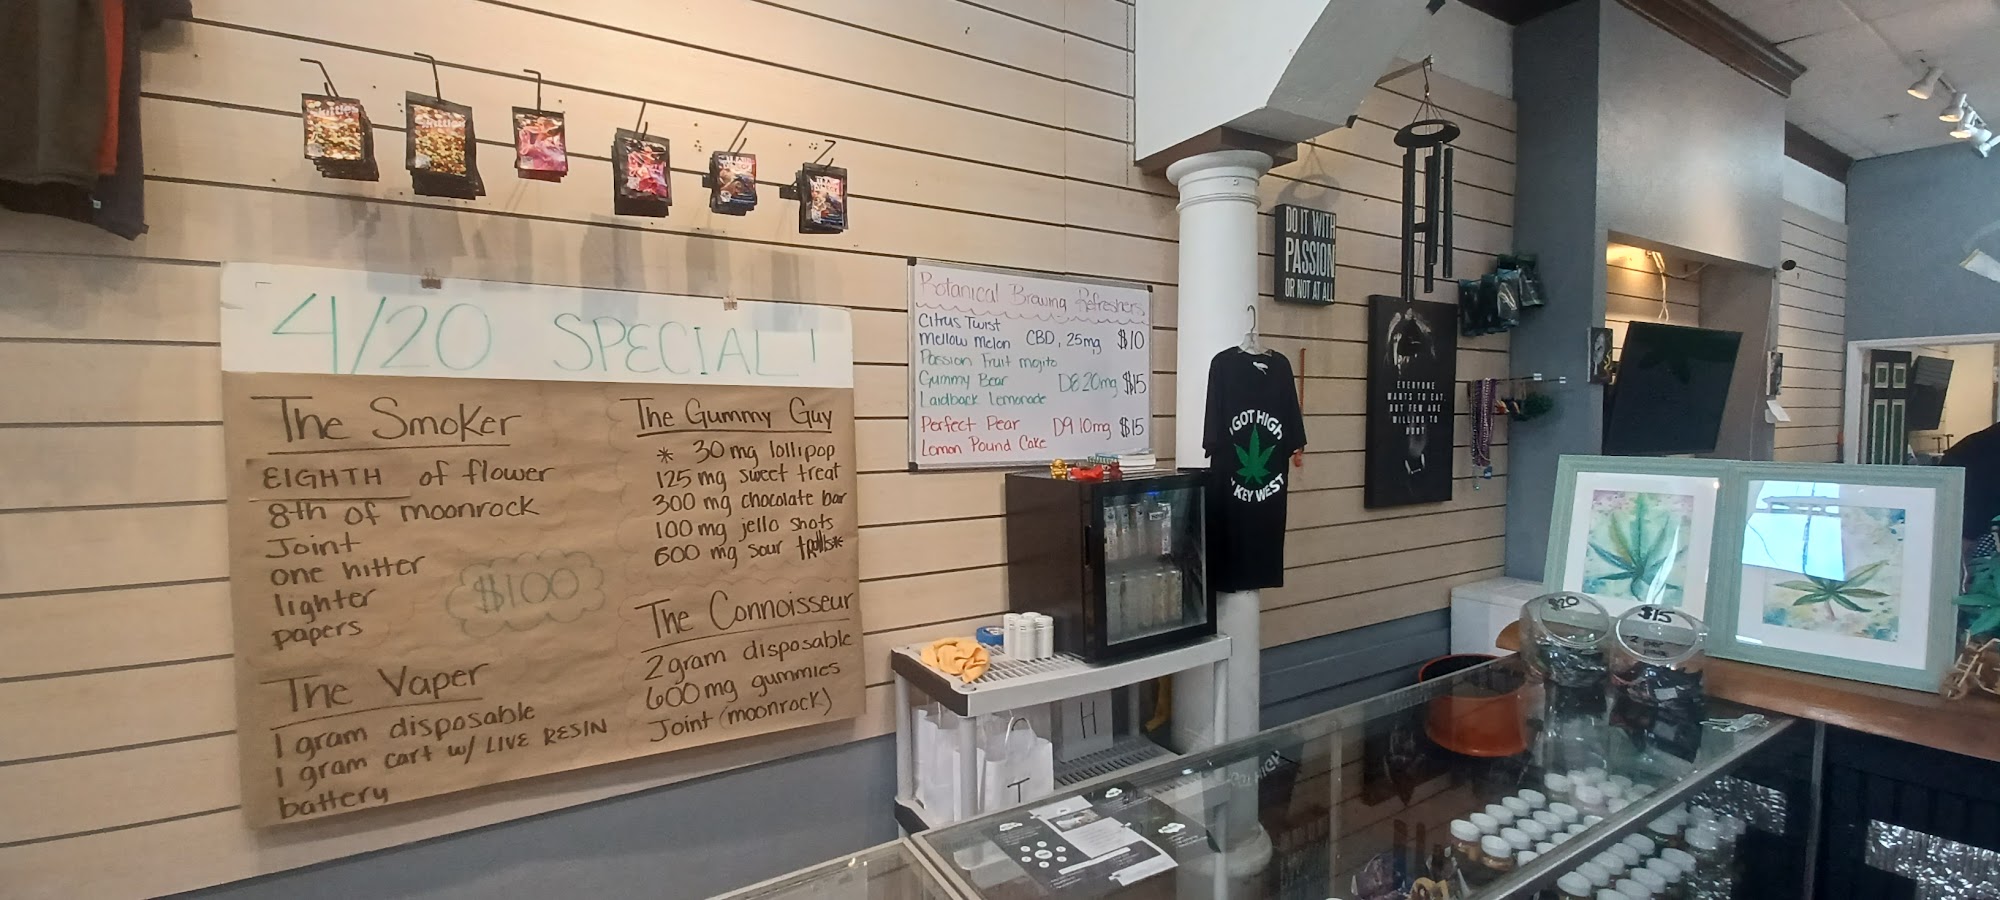 4/20 SPECIAL!
The Smoker
EIGHTH of flower
8th of moonrock
Joint
one hitter
lighter
papers
$100
The Vaper
1 gram disposable
1 gram cart w/ LIVE RESIN
battery
The Gummy Guy
* 30 mg lollipop
125 mg sweet treat
300 mg chocolate bar
100 mg jello shots
600 mg sour trolls*
The Connoisseur
2 gram disposable
600 mg gummies
Joint (moonrock)
Botanical Brewing Refreshers
Citrus Twist
Mellow Melon CBD, 25mg $10
Passion Fruit mojito
Gummy Bear D8 20mg $15
Laidback Lemonade
Perfect Pear D9 10mg $15
Lemon Pound Cake
DO IT WITH
PASSION
OR NOT AT ALL
I GOT HIGH
KEY WEST
EVERYONE
WANTS TO EAT,
BUT FEW ARE
WILLING TO
HUNT
$20
$15
H
T